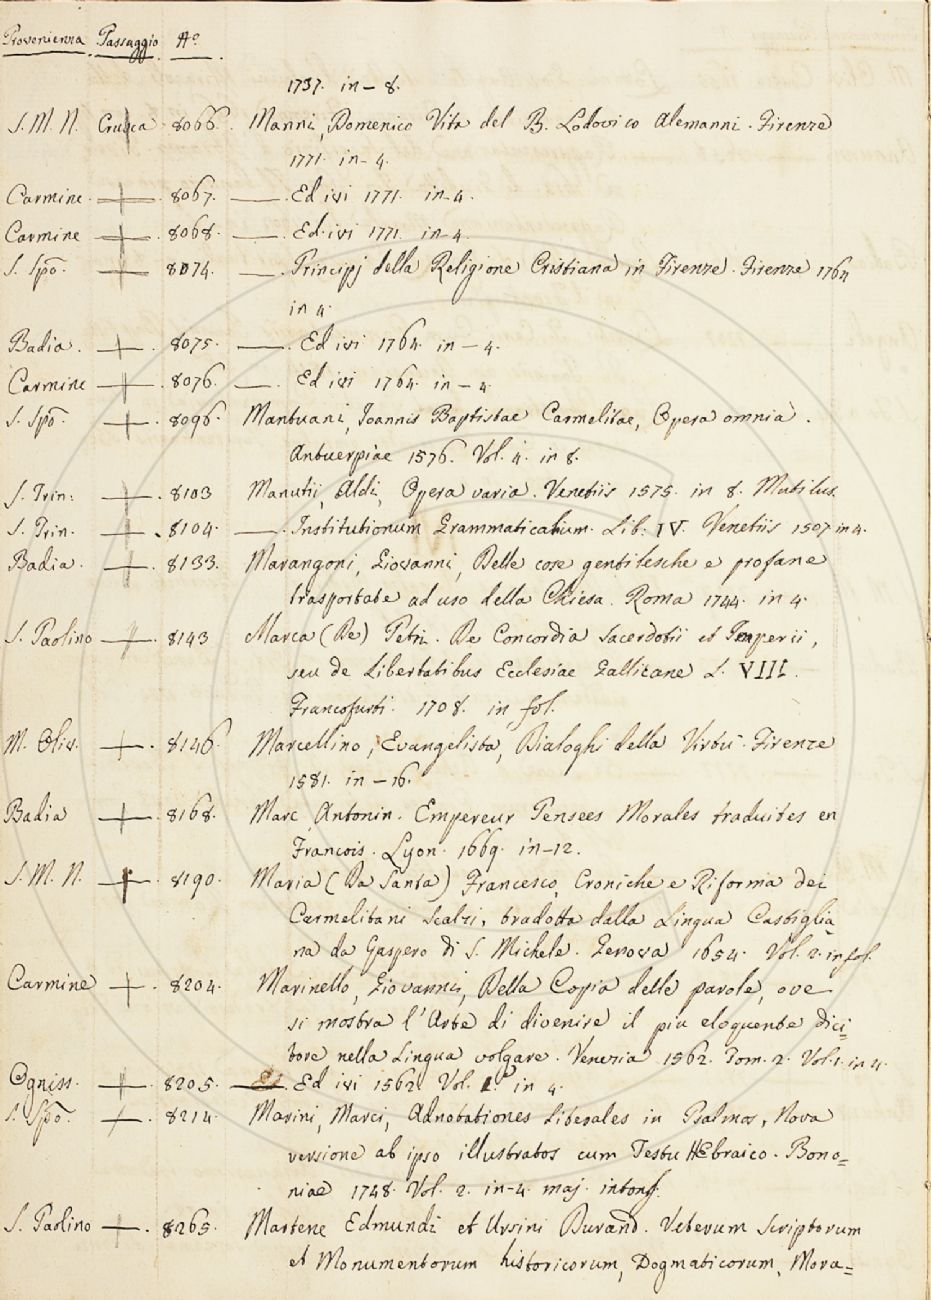 Provenienza Passaggio N.o
1737. in - 8.
S. M. N. Crusca 8066. Manni, Domenico Vita del B. Lodovico Alemanni. Firenze
1771. in - 4.
Carmine. 8067. —. Ed ivi 1771. in-4.
Carmine 8068. —. Ed. ivi 1771. in-4.
S. Spõ. 8074. —. Principj della Religione Cristiana in Firenze. Firenze 1764
in 4.
Badia. 8075. —. Ed ivi 1764. in - 4.
Carmine 8076. —. Ed ivi 1764. in - 4.
S. Spõ. 8096. Mantuani, Joannis Baptistae Carmelitae, Opera omnia.
Antuerpiae 1576. Vol. 4. in 8.
S. Trin: 8103 Manutii, Aldi, Opera varia. Venetiis 1575. in 8. Mutilus.
S. Trin. 8104. —. Institutionum Grammaticalium. Lib. IV. Venetiis 1507 in 4.
Badia. 8133. Marangoni, Giovanni, Delle cose gentilesche e profane
trasportate ad uso della Chiesa. Roma 1744. in 4.
S. Paolino 8143 Marca (De) Petri. De Concordia Sacerdotii et Imperii,
seu de Libertatibus Ecclesiae Gallicane L. VIII.
Francofurti. 1708. in fol.
M. Oliv. 8146. Marcellino, Evangelista, Dialoghi della Virtù. Firenze
1581. in - 16.
Badia 8168. Marc Antonin. Empereur Pensees Morales traduites en
Francois. Lyon. 1669. in-12.
S. M. N. 8190. Maria (Da Santa) Francesco, Croniche e Riforma dei
Carmelitani Scalzi, tradotta dalla Lingua Castiglia
na da Gaspero di S. Michele. Genova 1654. Vol. 2. in fol.
Carmine 8204. Marinello, Giovanni, Della Copia delle parole, ove
si mostra l'Arte di divenire il piu eloquente dici=
tore nella Lingua volgare. Venezia 1562. Tom. 2. Vol. 1. in 4.
Ogniss. 8205. —. Ed ivi 1562. Vol. 1. in 4.
S. Spõ. 8214. Marini, Marci, Adnotationes literales in Psalmos, Nova
versione ab ipso illustratos cum Testu HEbraico. Bono=
niae 1748. Vol. 2. in-4. maj. intons.
S. Paolino 8265. Martene Edmundi et Ursini Durand. Veterum Scriptorum
et Monumentorum historicorum, Dogmaticorum, Mora=